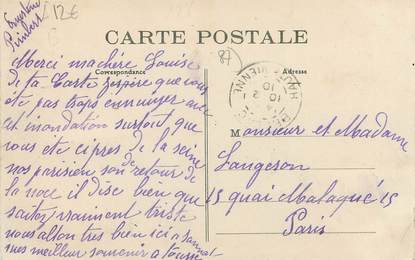 12€
CARTE POSTALE
Correspondance
Adresse
87
Merci ma chère Louise
de ta Carte j'espère que vous
ete pas traps ennuyer avec
cet inondation surtout que
vous ete ci pres de la seine
nos parisien son de retour de
la noce il dise bien que
vraiment triste
nous allon tres bien ici a
nos meilleur souvenir a tous
M
Monsieur et Madame
Langeron
15 quai Malaquè 15
Paris